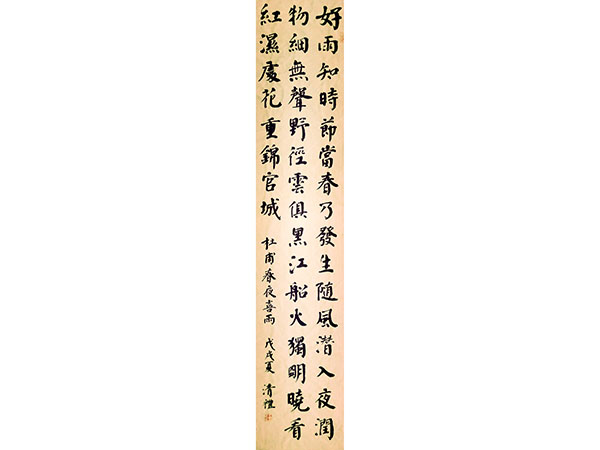 好雨知時節當春乃發生随風潛入夜潤
物細無聲野徑雲俱黑江船火獨明曉看
紅濕處花重錦官城 杜甫春夜喜雨 戊戌夏 清